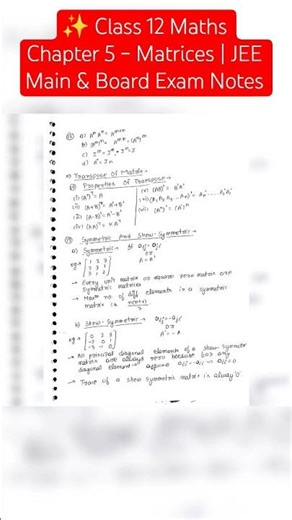 ✨ Class 12 Maths
Chapter 5 – Matrices | JEE
Main & Board Exam Notes
a) Aᵐ Aⁿ = Aᵐ⁺ⁿ
b) (Aᵐ)ⁿ = Aᵐⁿ = (Aⁿ)ᵐ
d) A⁰ = In
→ Transpose Of Matrix→
Properties Of Transpose→
(i) (A')' = A
(ii) (A+B)' = A'+B'
(iii) (A-B)' = A'-B'
(iv) (KA)' = KA'
(v) (AB)' = B'A'
Symmetric And Skew-Symmetric→
a) Symmetric →
A = A'
→ Every unit matrix or square zero matrix are
symmetric matrices
→ Max no. of diff elements in a symmetric
matrix is n(n+1)/2
b) Skew-Symmetric →
→ All principal diagonal elements of a skew symmetric
matrix are always zero because for any
diagonal element
→ Trace of a skew symmetric matrix is always 0